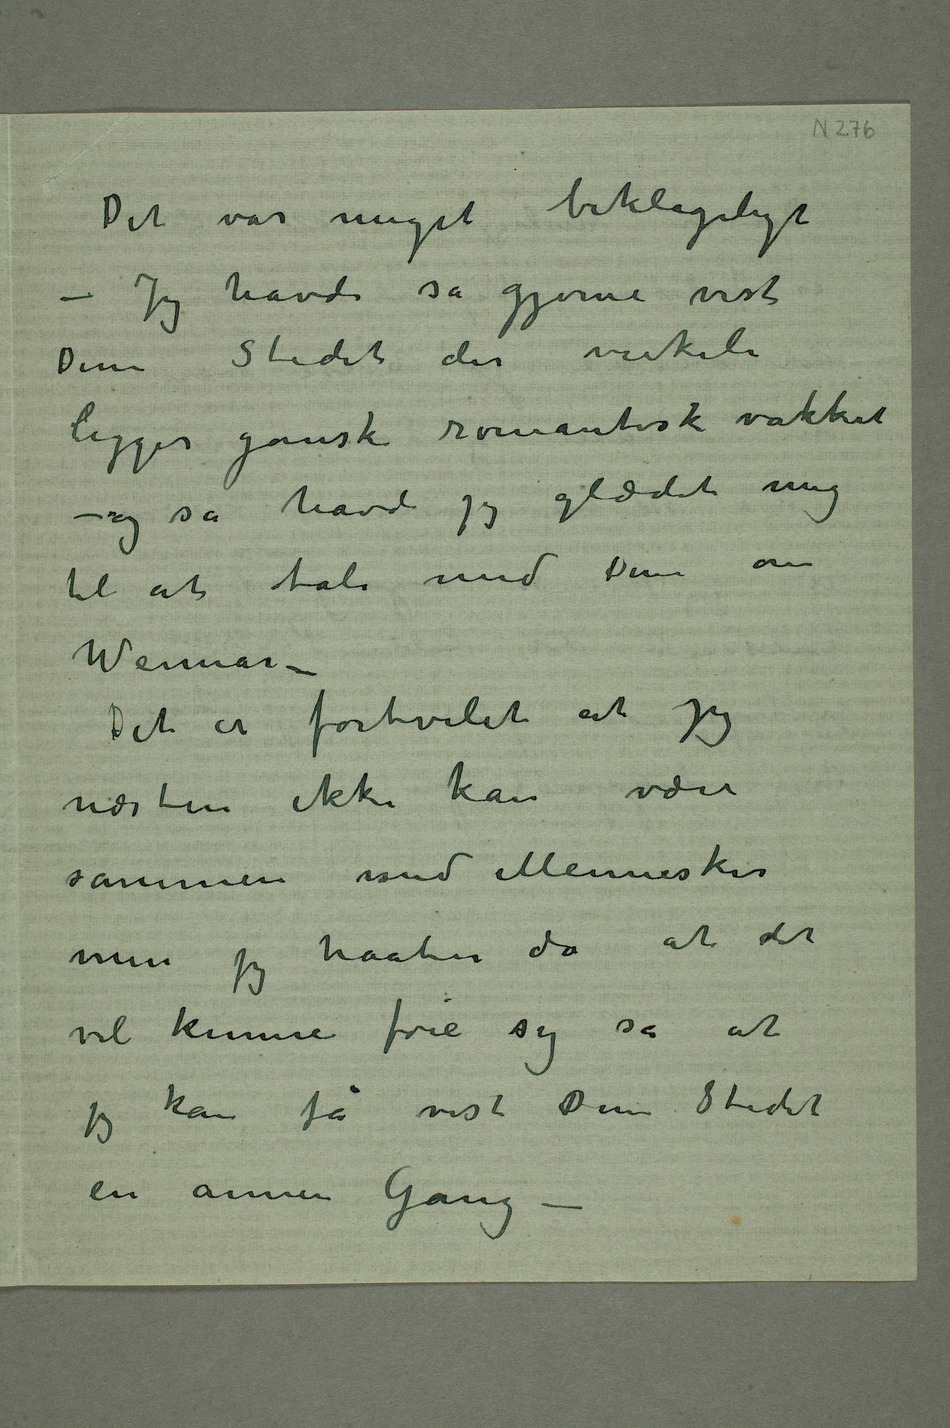 N 276
Det var meget beklageligt
– Jeg havde så gjerne vist
Dem Stedet der virkeli
ligger ganske romantisk vakkert
– og så havde jeg glædet mig
til at tale med Dem om
Weimar –
Det er fortvilet at jeg
næsten ikke kan være
sammen med Mennesker
men jeg haaber da at det
vil kunne föie sig så at
jeg kan få vist Dem Stedet
en annen Gang –